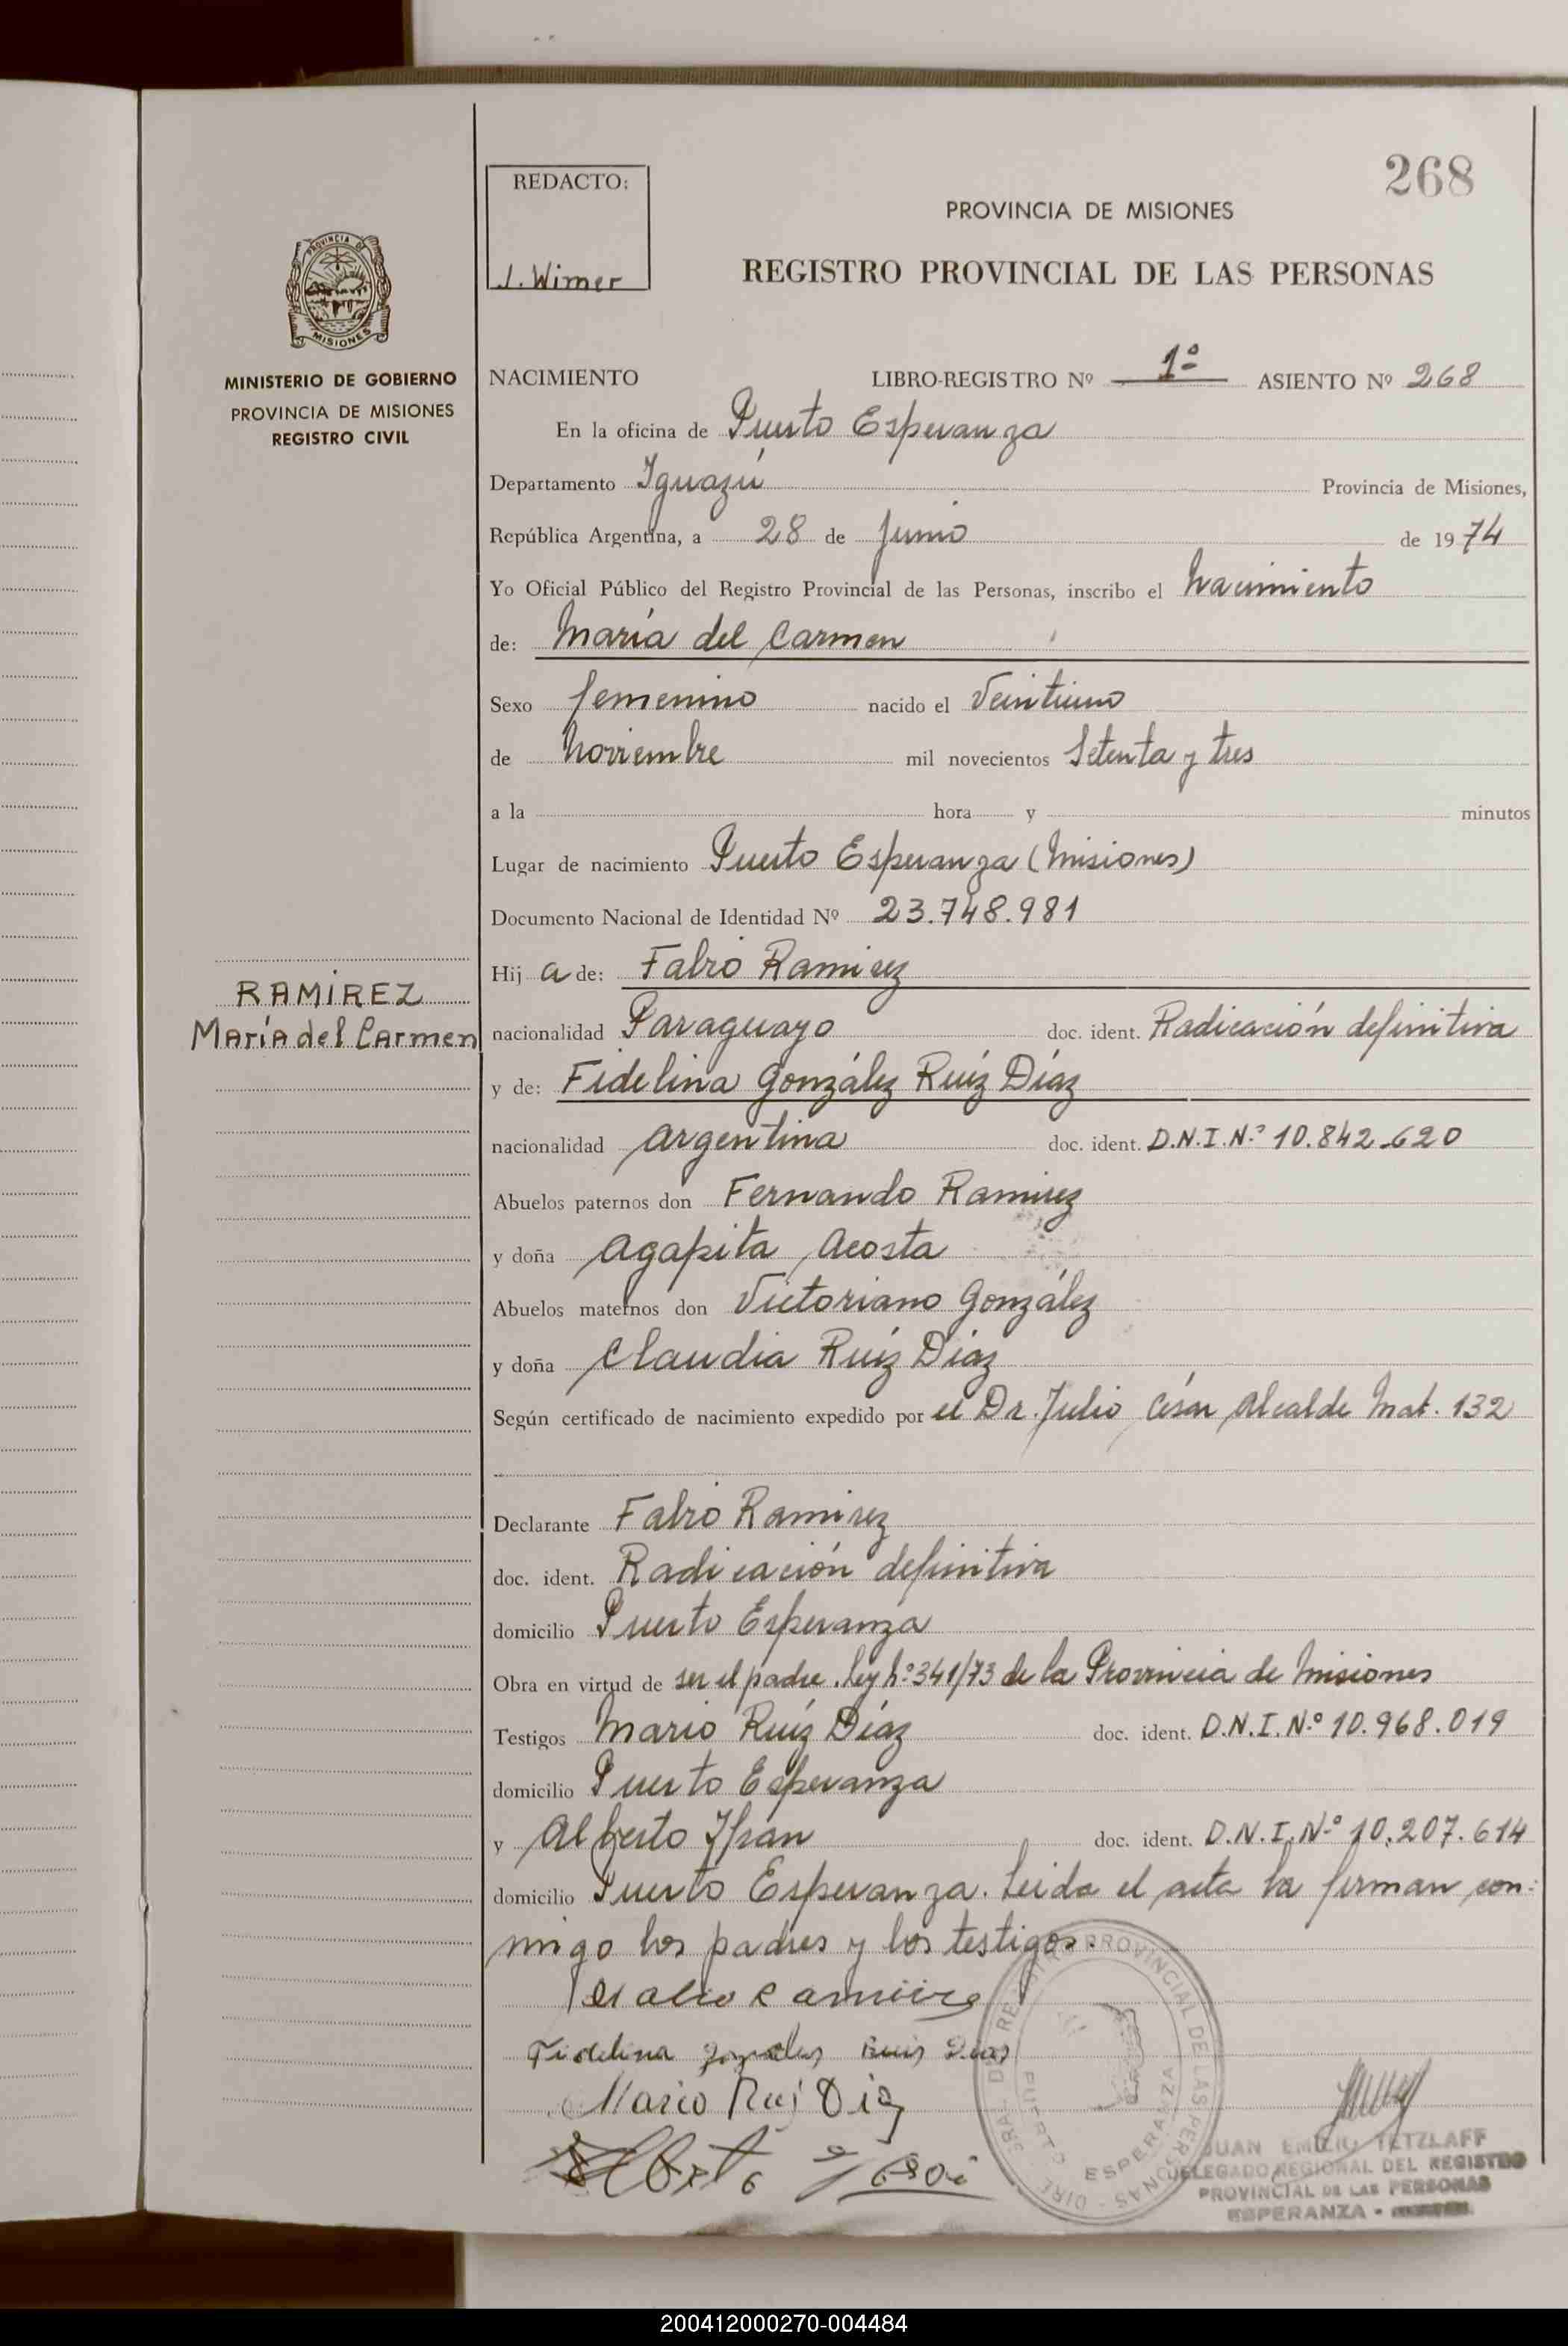 268
REDACTO:
J. Wimer
PROVINCIA DE MISIONES
REGISTRO PROVINCIAL DE LAS PERSONAS
PROVINCIA DE
MISIONES
MINISTERIO DE GOBIERNO
PROVINCIA DE MISIONES
REGISTRO CIVIL
NACIMIENTO LIBRO-REGISTRO Nº 1º ASIENTO Nº 268
En la oficina de Puerto Esperanza
Departamento Iguazú Provincia de Misiones,
República Argentina, a 28 de Junio de 1974
Yo Oficial Público del Registro Provincial de las Personas, inscribo el Nacimiento
de: María del Carmen
Sexo femenino nacido el Veintiuno
de Noviembre mil novecientos Setenta y tres
a la hora y minutos
Lugar de nacimiento Puerto Esperanza (Misiones)
Documento Nacional de Identidad Nº 23.748.981
Hij a de: Fabio Ramirez
RAMÍREZ
María del Carmen
nacionalidad Paraguayo doc. ident. Radicación definitiva
y de: Fidelina González Ruíz Díaz
nacionalidad Argentina doc. ident. D.N.I.N.º 10.842.620
Abuelos paternos don Fernando Ramirez
y doña Agapita Acosta
Abuelos maternos don Victoriano González
y doña Claudia Ruíz Díaz
Según certificado de nacimiento expedido por el Dr. Julio César Alcalde Mat. 132
Declarante Fabio Ramirez
doc. ident. Radicación definitiva
domicilio Puerto Esperanza
Obra en virtud de ser el padre. Ley Nº 341/73 de la Provincia de Misiones
Testigos Mario Ruíz Díaz doc. ident. D.N.I.N.º 10.968.019
domicilio Puerto Esperanza
y Alberto doc. ident. D.N.I.N.º 10.207.614
domicilio Puerto Esperanza. Leida el acta la firman con-
migo los padres y los testigos.
Fidelina Ruis Dias
Mario Rui Diaz
PROVINCIAL DE LAS PERSONAS
PUERTO ESPERANZA
JUAN EMILIO TETZLAFF
DELEGADO REGIONAL DEL REGISTRO
PROVINCIAL DE LAS PERSONAS
ESPERANZA -
200412000270-004484